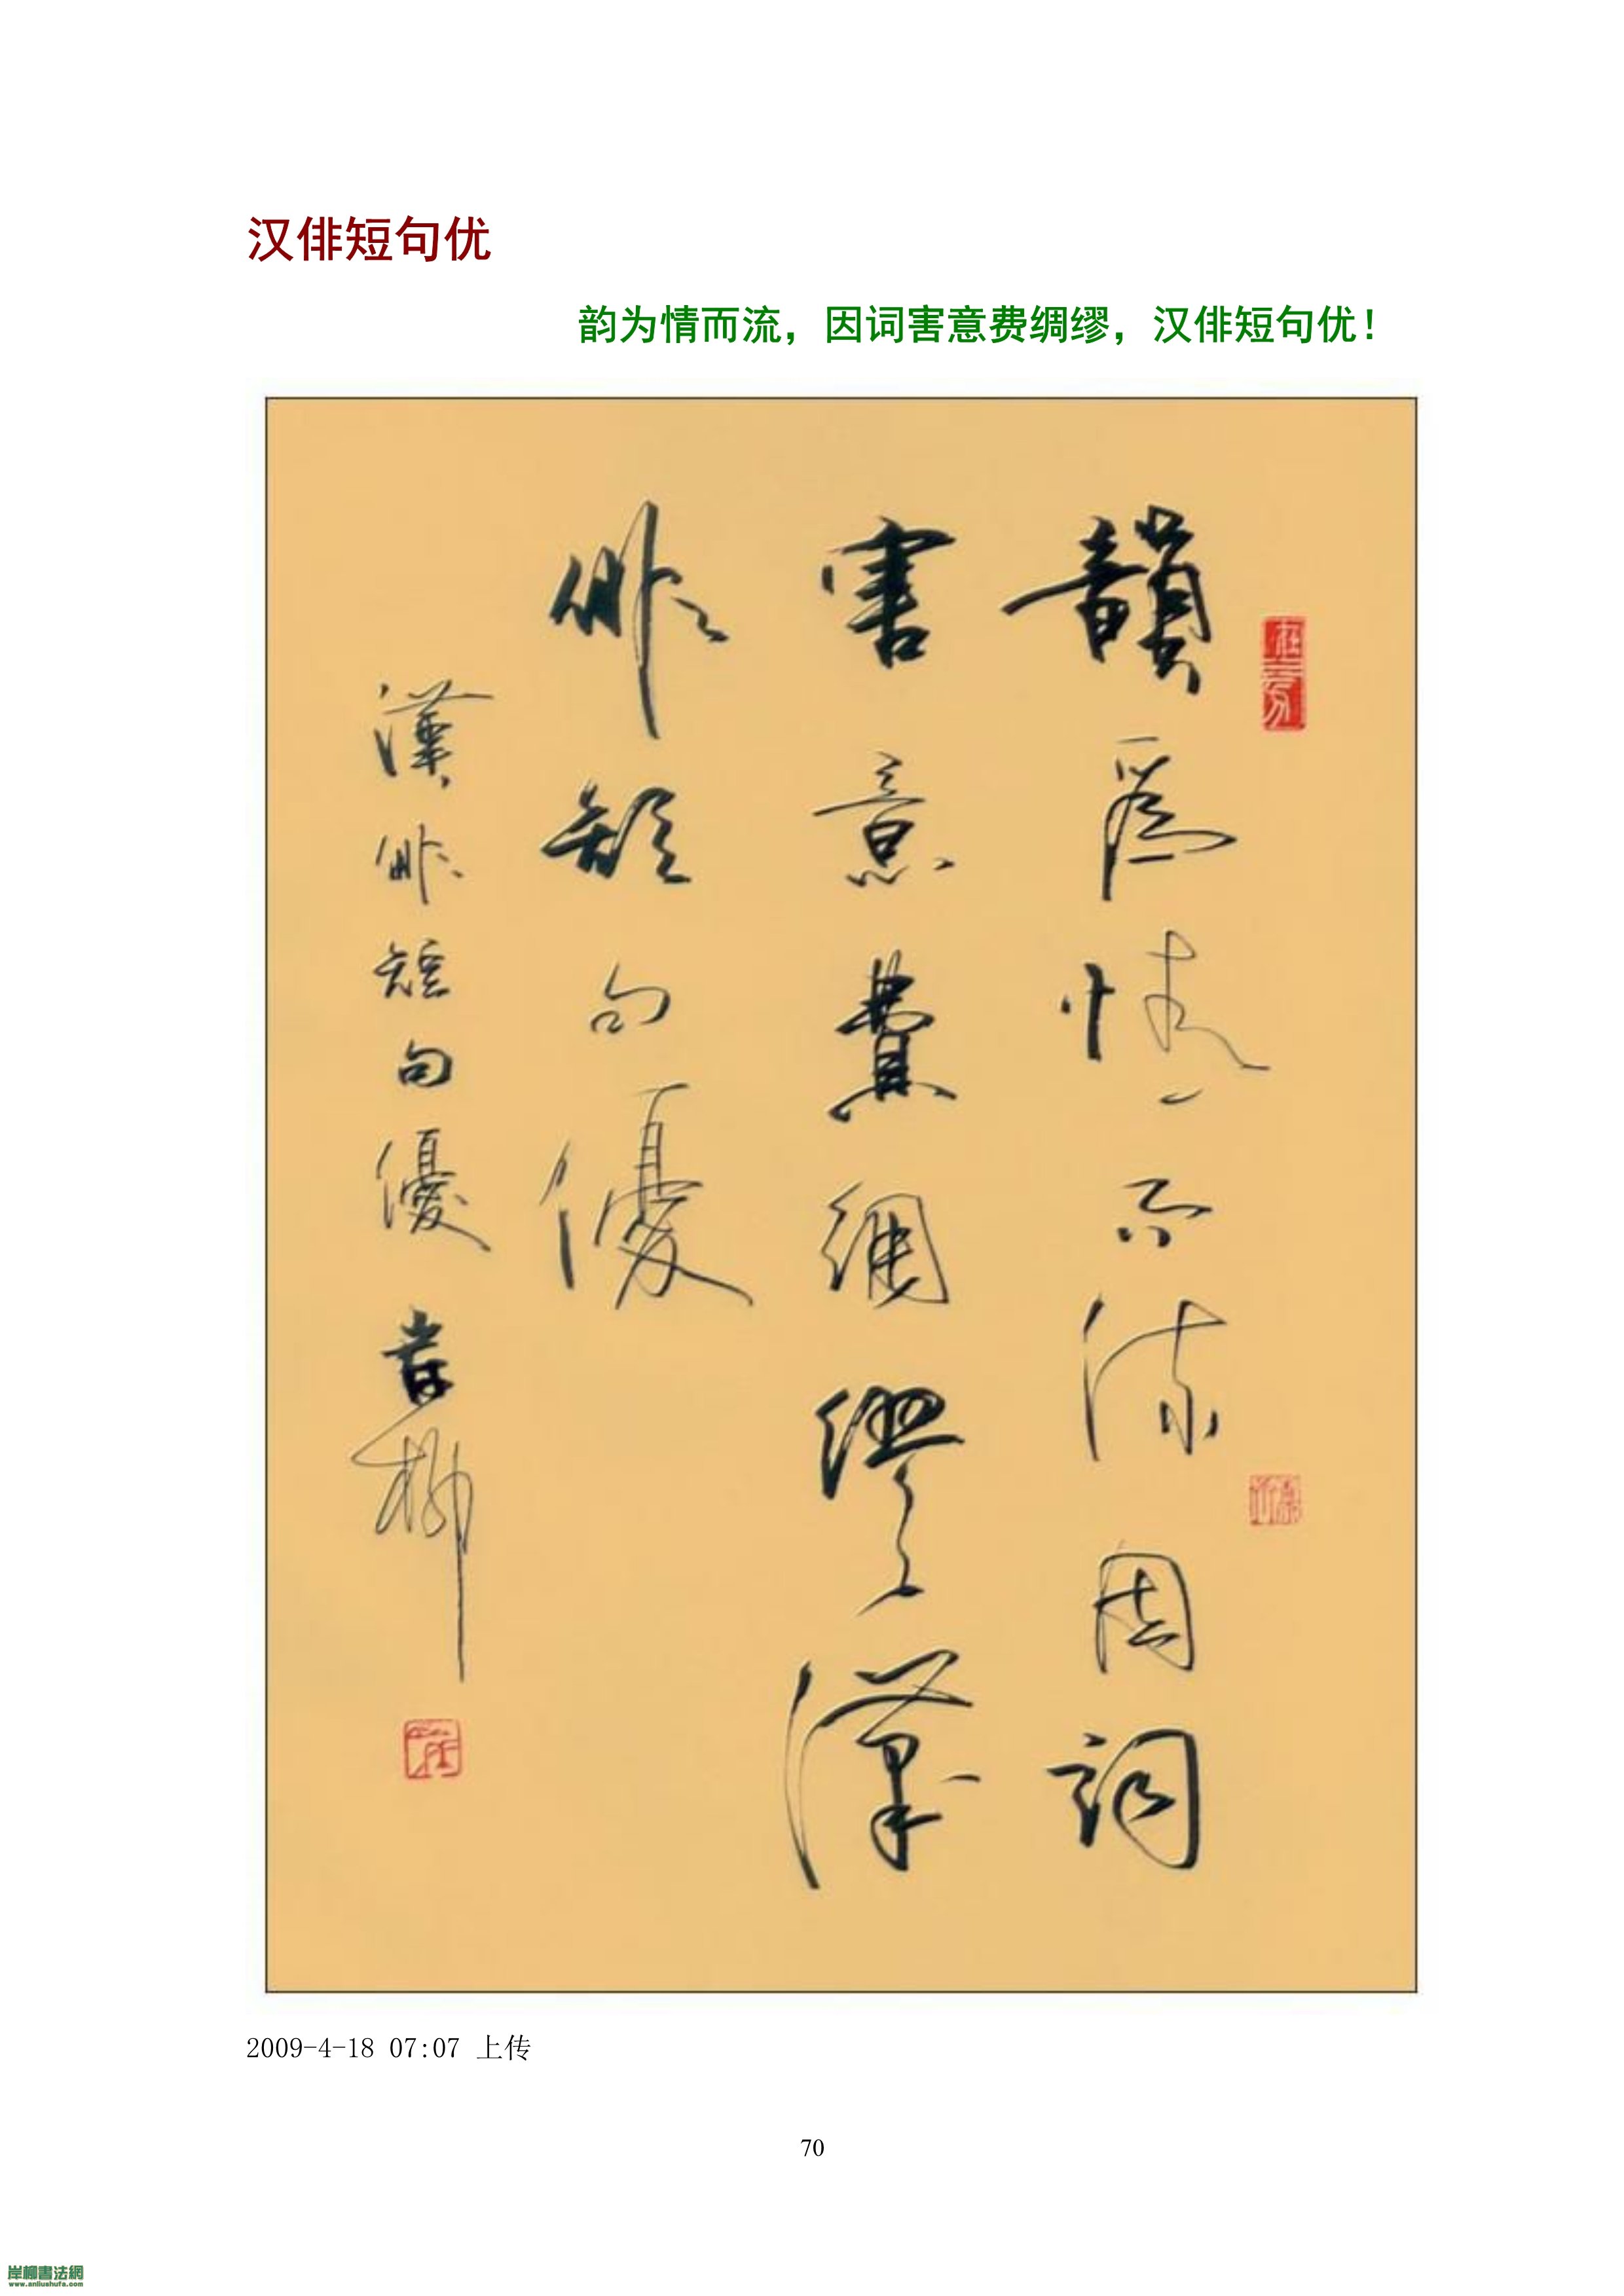 汉俳短句优
韵为情而流，因词害意费绸缪，汉俳短句优！
韻為情而流因詞
害意費綢繆漢
俳短句優
漢俳短句優 岸柳
2009-4-18 07:07 上传
70
岸柳書法網
www.anliushufa.com